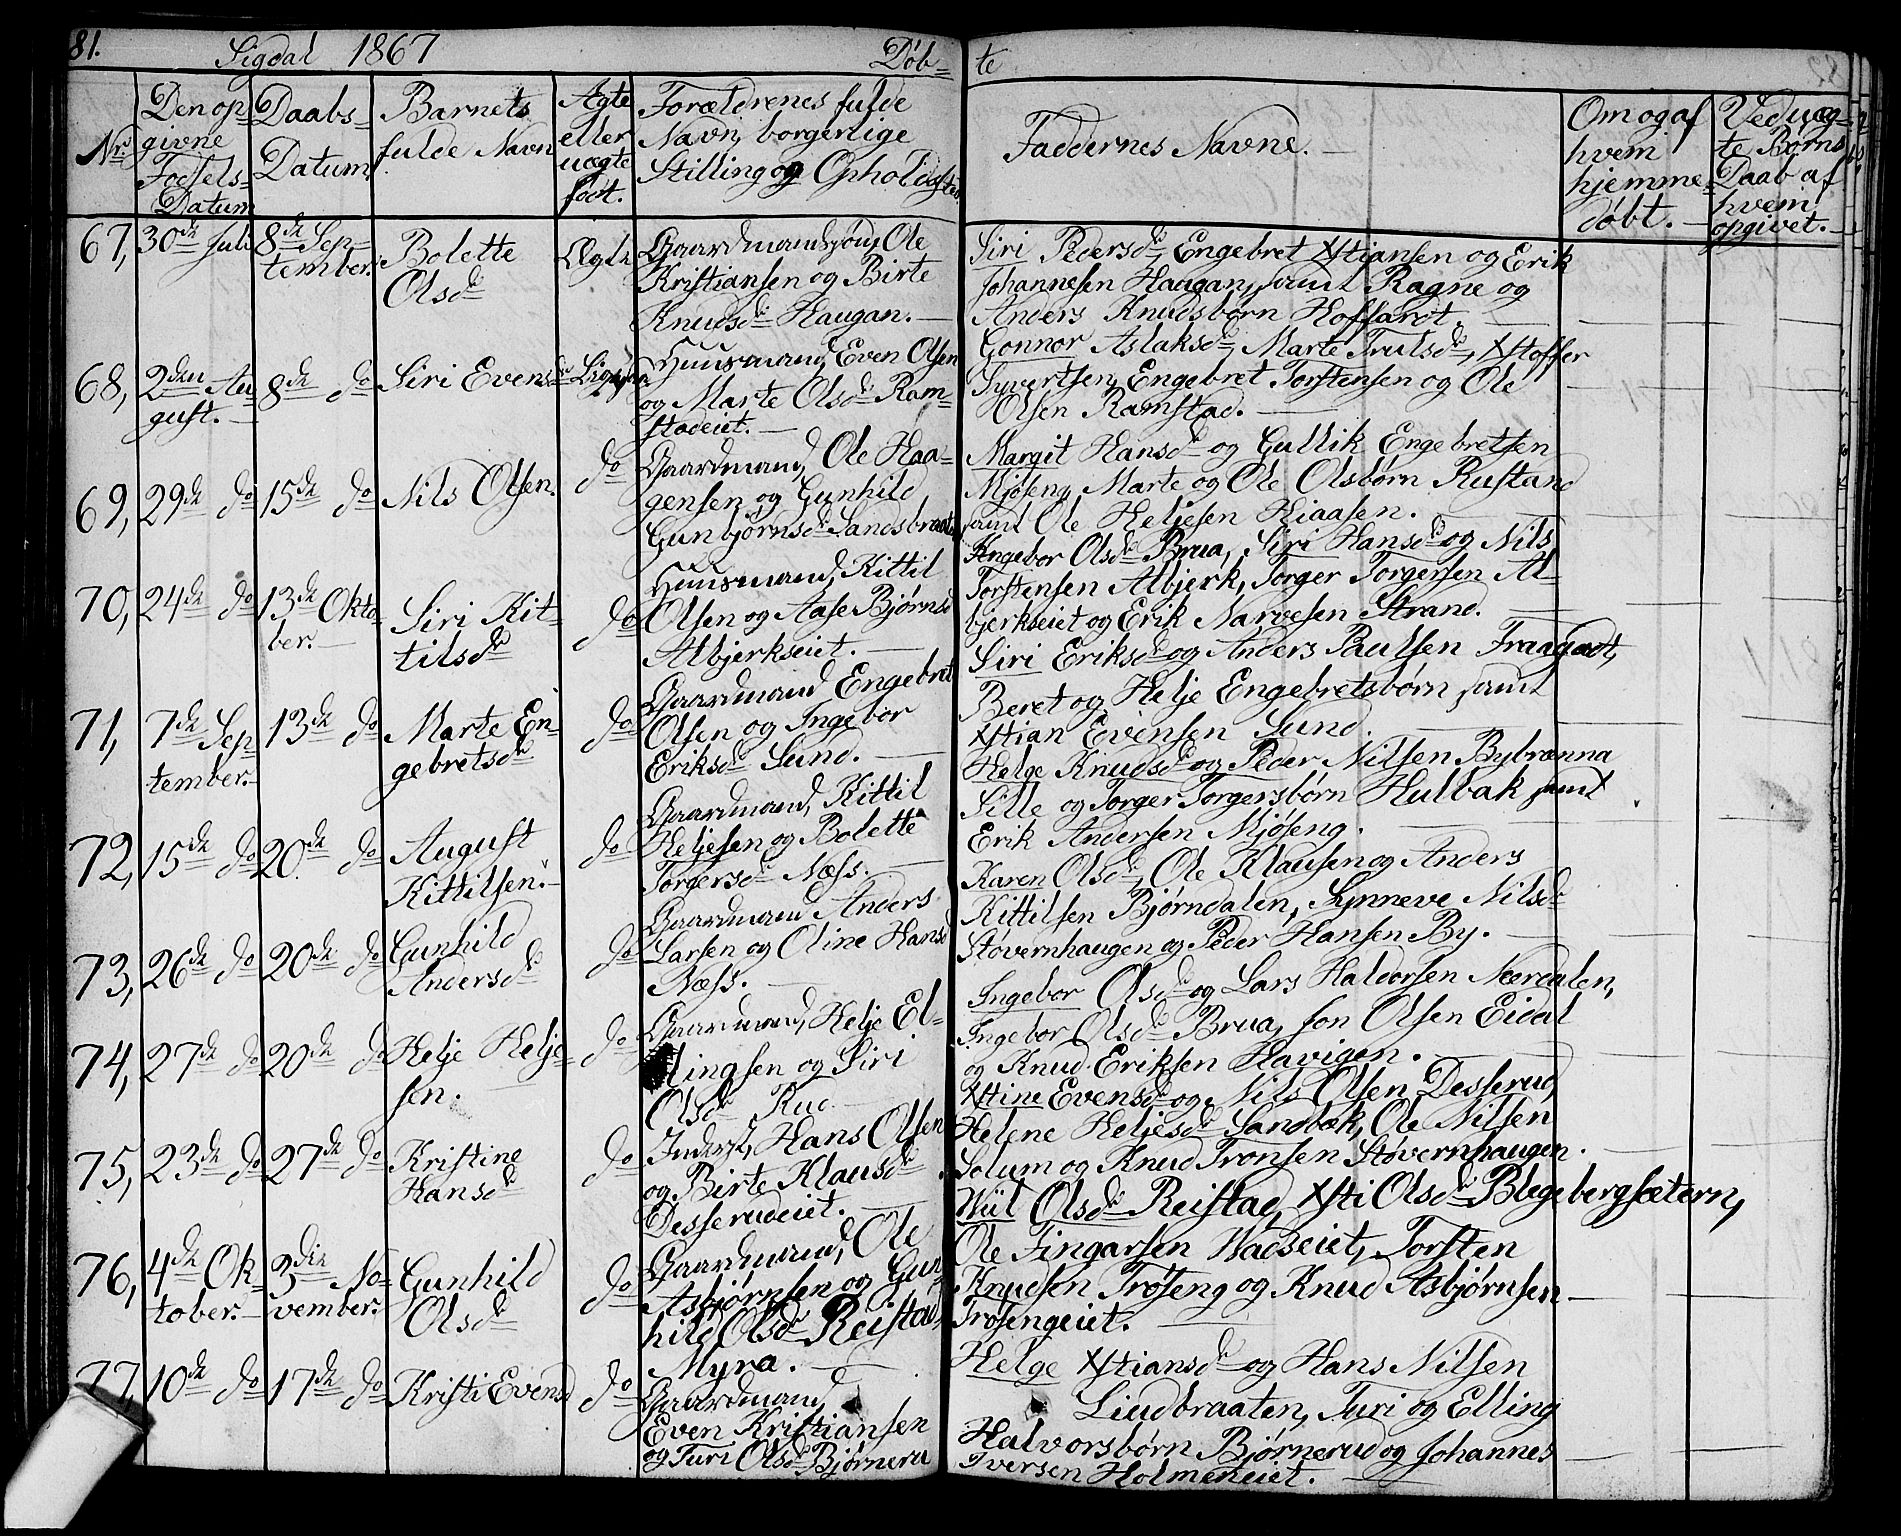 81.
Sigdal 1867
Døb=
te
Nr.
Den op=
givne
Fødsels=
Datum
Daabs=
Datum
Barnets
fulde Navn
Ægte
eller
uægte
født.
Forældrenes fulde
Navn, borgerlige
Stilling og Opholdsted
Faddernes Navne.
Om og af
hvem
hjemme=
døbt.
Ved uæg=
te Børns
Daab af
hvem
opgivet.
67, 30de Juli
8de Sep=
tember.
Bolette
Olsdr
Ægte
Gaardmandssøn, Ole
Kristiansen og Birte
Knudsdr Haugan.
Siri Pedersdr, Engebret Xstiansen og Erik
Johannesen Haugan, samt Ragne og
Anders Knudsbørn Hoffardt
68, 2den Au=
gust.
8de do
Siri Evensdr
Huusmand, Even Olsen
og Marte Olsdr Ram=
stadeiet.
Gonnor Aslaksdr, Marte Trulsdr, Xstoffer
Syvertsen, Engebret Torstensen og Ole
Olsen Ramstad.
69, 29de do
15de do
Nils Olsen.
do
Gaardmand, Ole Haa=
gensen og Gunhild
Gunbjørnsdr Sandsbraaten
Margit Hansdr og Gullik Engebretsen
Mjøseng, Marte og Ole Olsbørn Rustand
samt Ole Heljesen Kiaasen.
70, 24de do
13de Okto=
ber.
Siri Kit=
tilsdr
do
Huusmand, Kittil
Olsen og Aase Bjørnsd
Albjerkseiet.
Ingebor Olsdr Brua, Siri Hansdr og Nils
Torstensen Albjerk, Torger Torgersen Al=
bjerkseiet og Erik Narvesen Strand.
71, 7de Sep
tember.
13de do
Marte En=
gebretsdr
do
Gaardmand Engebret
Olsen og Ingebor
Eriksdr Lund.
Siri Eriksdr og Anders Paulsen Fraagaadt,
Beret og Helje Engebretsbørn samt
Xstian Evensen Lund.
72, 15de do
20de do
August
Kittilsen.
do
Gaardmand, Kittil
Heljesen og Bolette
Torgersdr Næss.
Helge Knudsdr og Peder Nilsen Bybrænna
Sille og Torger Torgersbørn Hulbak samt
Erik Andersen Mjøseng.
73, 26de do
20de do
Gunhild
Andersdr
do
Gaardmand Anders
Larsen og Oline Hansd
Næss.
Karen Olsdr, Ole Klausen og Anders
Kittilsen Bjørndalen, Synneve Nilsdr
Støvernhaugen og Peder Hansen By.
74, 27de do
20de do
Helje Helje=
sen.
do
Gaardmand, Helje El=
lingsen og Siri
Olsdr Rud
Ingebor Olsdr og Lars Haldorsen Nærdalen,
Ingebor Olsdr Brua, Jon Olsen Eidal
og Knud Eriksen Havigen.
75, 23de do
27de do
Kristine
Hansdr
do
Inderst, Hans Olsen
og Birte Klausdr
Desserudeiet.
Xstine Evensdr og Nils Olsen Desserud,
Helene Heljesdr Sandbæk, Ole Nilsen
Solum og Knud Tronsen Støvernhaugen.
76, 4de Ok=
tober.
3die No=
vember.
Gunhild
Olsdr
do
Gaardmand, Ole
Asbjørnsen og Gun=
hild Olsdr Reistad,
Myra.
Wiil Olsdr Reistad, Xsti Olsdr Blegebergsætern,
Ole Fingarsen Wadseiet, Torsten
Knudsen Trøseng og Knud Asbjørnsen
Trøsengeiet.
77, 10de do
17de do
Kristi Evensd
do
Gaardmand,
Even Kristiansen
og Turi Olsdr Bjørnerud
Helge Xstiansdr og Hans Nilsen
Lindbraaten, Turi og Elling
Halvorsbørn Bjørnerud og Johannes
Iversen Holmeneiet.